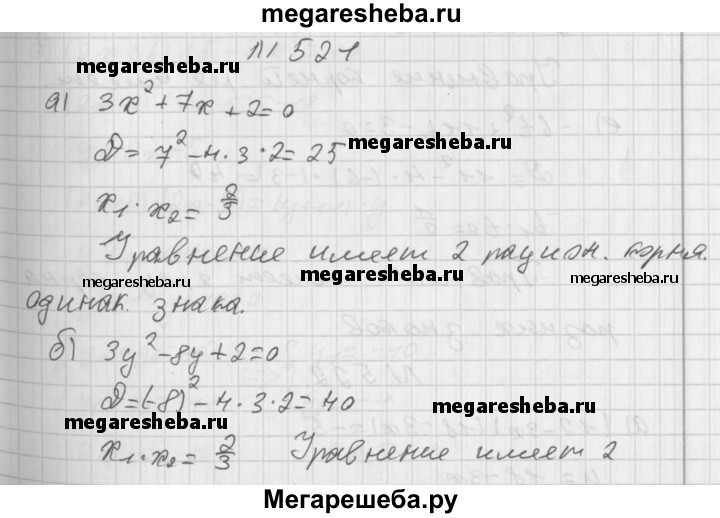 megaresheba.ru
N 521
megaresheba.ru megaresheba.ru
а) 3x² + 7x + 2 = 0
D = 7² - 4 · 3 · 2 = 25
megaresheba.ru
x₁ · x₂ = 2/3
Уравнение имеет 2 рацион. корня.
megaresheba.ru megaresheba.ru megaresheba.ru
одинак. знака.
б) 3y² - 8y + 2 = 0
D = (-8)² - 4 · 3 · 2 = 40
megaresheba.ru megaresheba.ru
x₁ · x₂ = 2/3 Уравнение имеет 2
Мегарешеба.ру